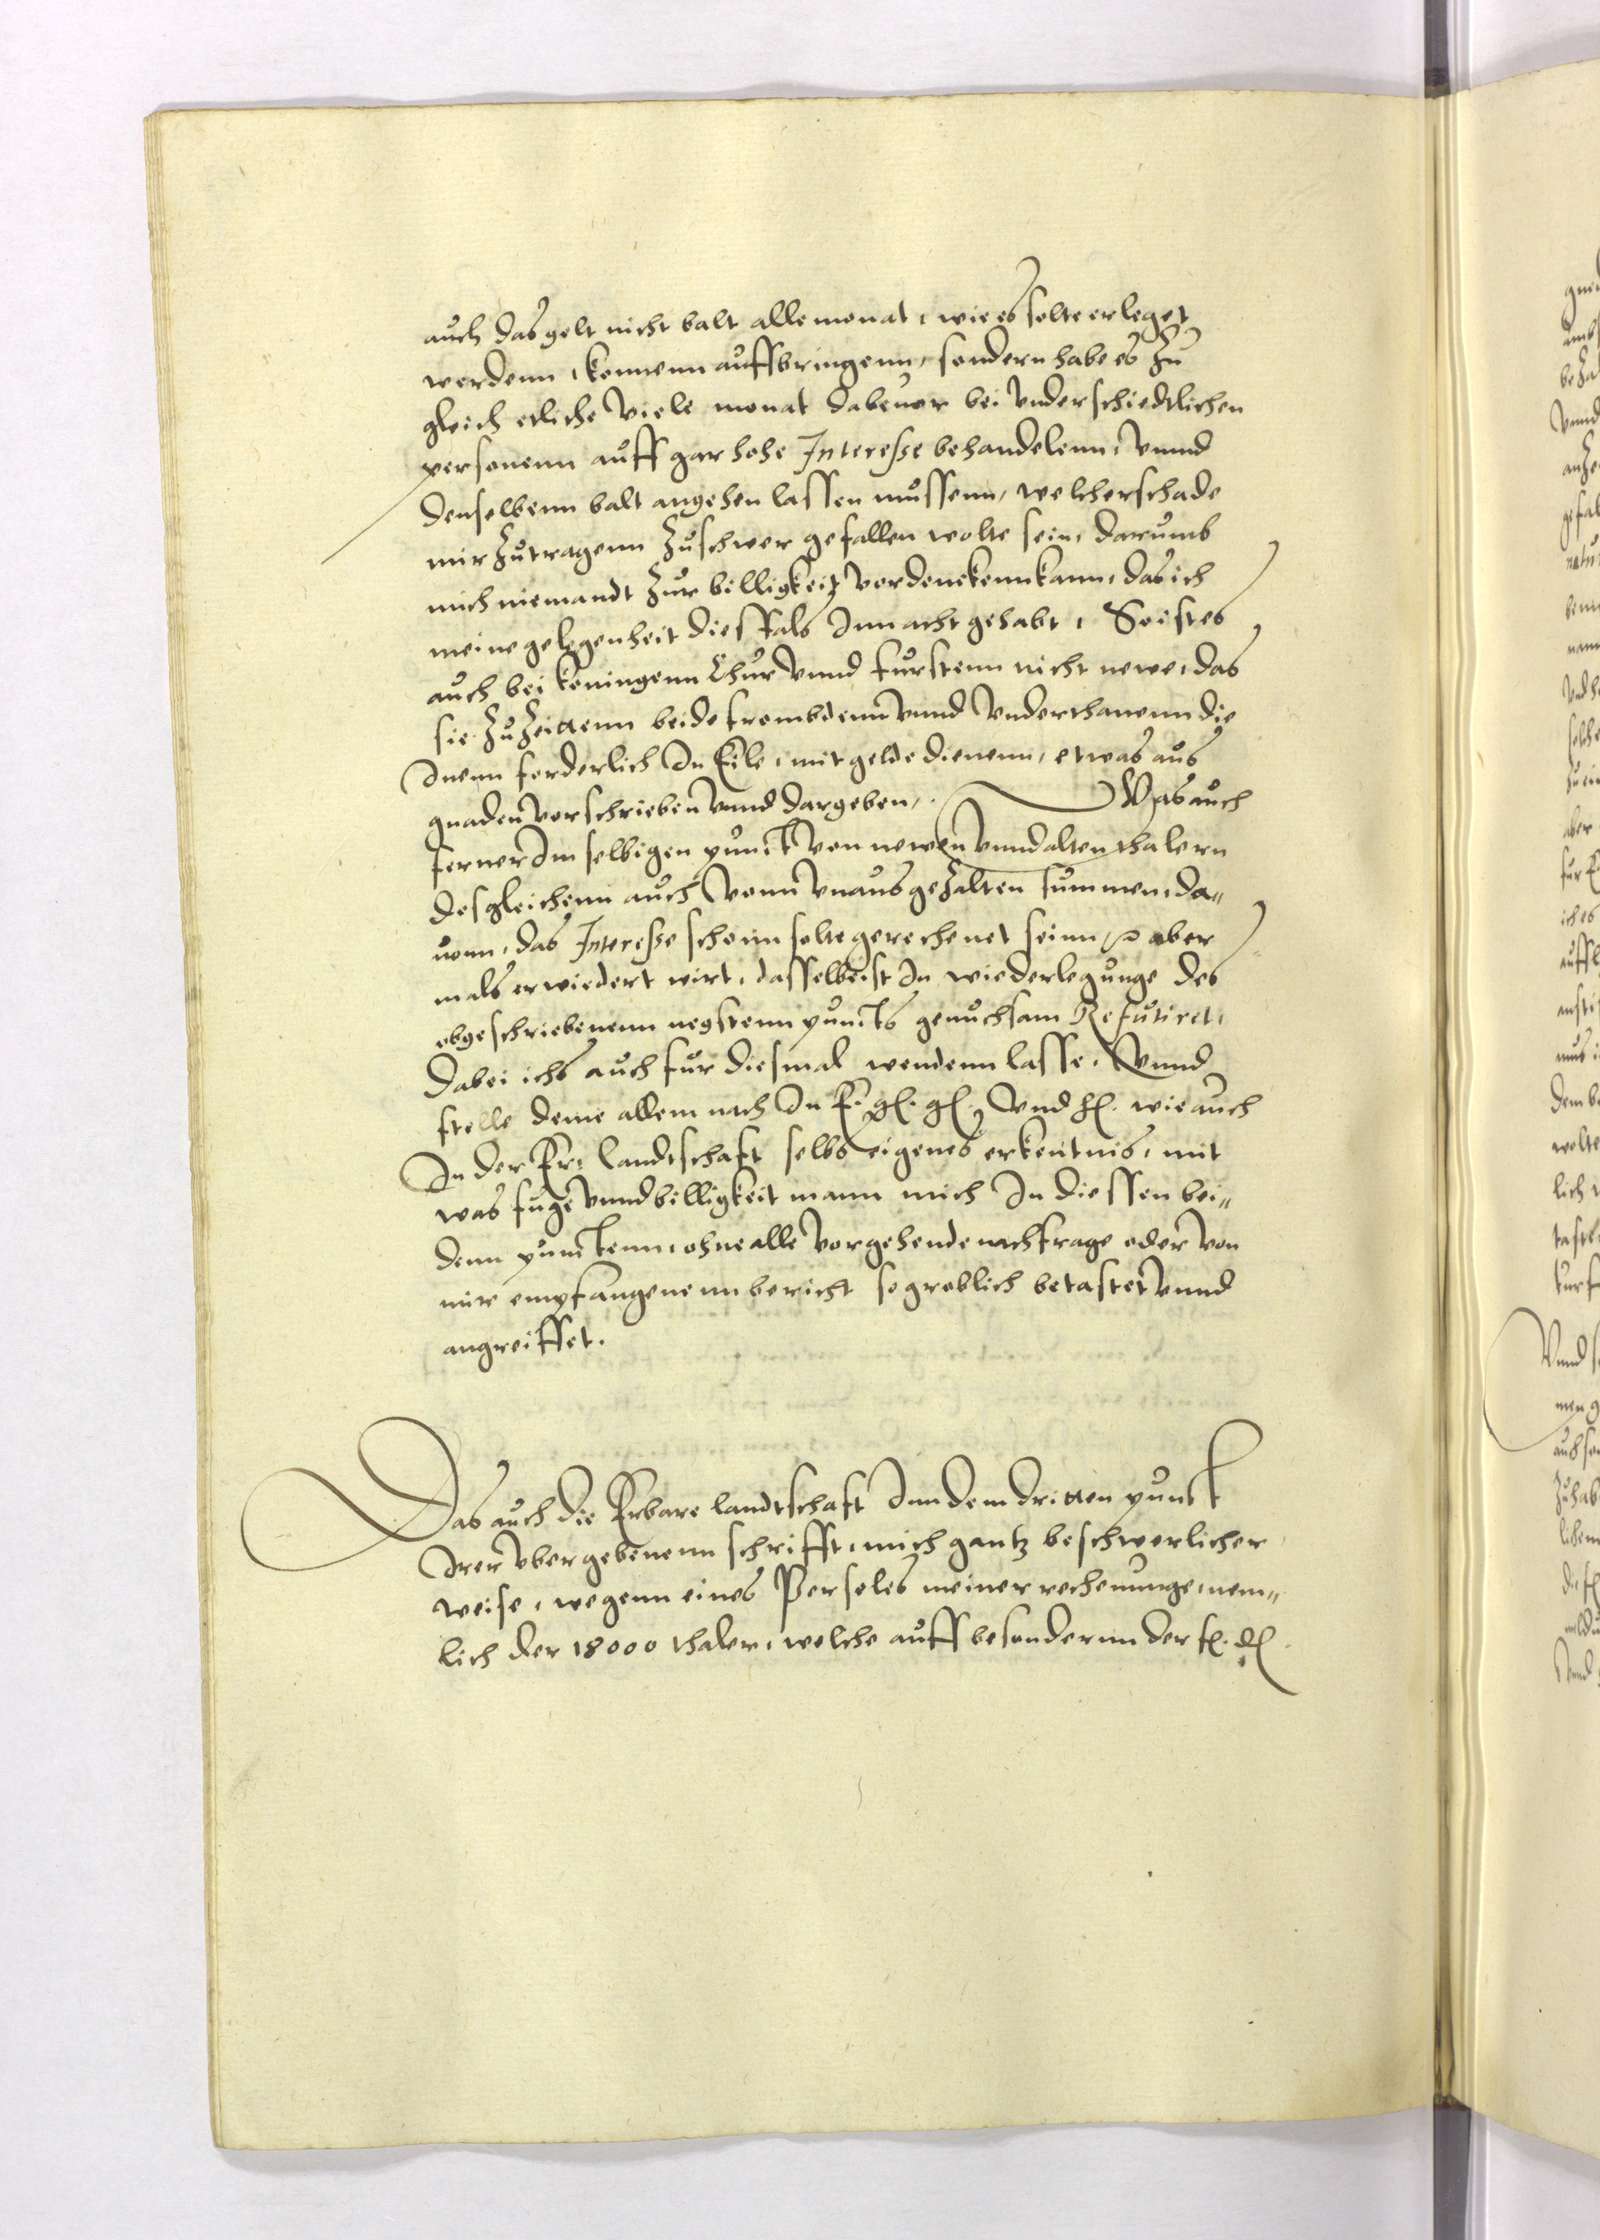 auch das gelt nicht balt alle monat, wie es solte erleget
werdenn, konnenn auffbringenn, sondern habe es Zu
gleich etliche viele monat dabeuor bei vnderschiedtlichen
personenn auff gar hohe Interesse behandelenn, vnnd
denselbenn balt angehen lassen mussenn, welcher schade
mir Zutragenn Zuschwer gefallen wolte sein, darumb
mich niemandt Zur billigkeit verdenckenn kann, das ich
meine gelegenheit diesfals Inn acht gehabt, So ist es
auch bei koningenn Chur vnnd furstenn nicht newe, das
sie ZuZeittenn beide frombdenn vnnd vnderthanenn die
Inenn forderlich In Eile, mit gelde dienenn, etwas aus
gnaden verschrieben vnnd dargeben, Was auch
ferner Im selbigen punct von newen vnnd alten thalern
desgleichenn auch vonn vnausgeZalten summen, da-
uonn, das Interesse schonn solte gerechenet seinn, aber
mals erwiedert wirt, dasselbe ist In wiederlegunge des
obgeschriebenenn negstenn puncts genuchsam Refutiret,
Dabei ichs auch fur diesmal wendenn lasse, Vnnd
stelle deme allem nach In E. g. g. vnd f. wie auch
In der Er: landtschaft selbs eigenes erkentnis, mit
was fuge vnnd billigkeit mann mich In diessen bei-
denn punctenn, ohne alle vorgehende nachfrage oder von
mir empfangenenn bericht so groblich betastet vnnd
angreiffet.
Das auch die Erbare landtschaft Inn dem dritten punct
Irer vbergebenenn schrifft, mich gantz beschwerlicher
weise, wegenn eines Perseles meiner rechenunge, nem-
lich der 18000 thaler, welche auff besondernn der f. d.